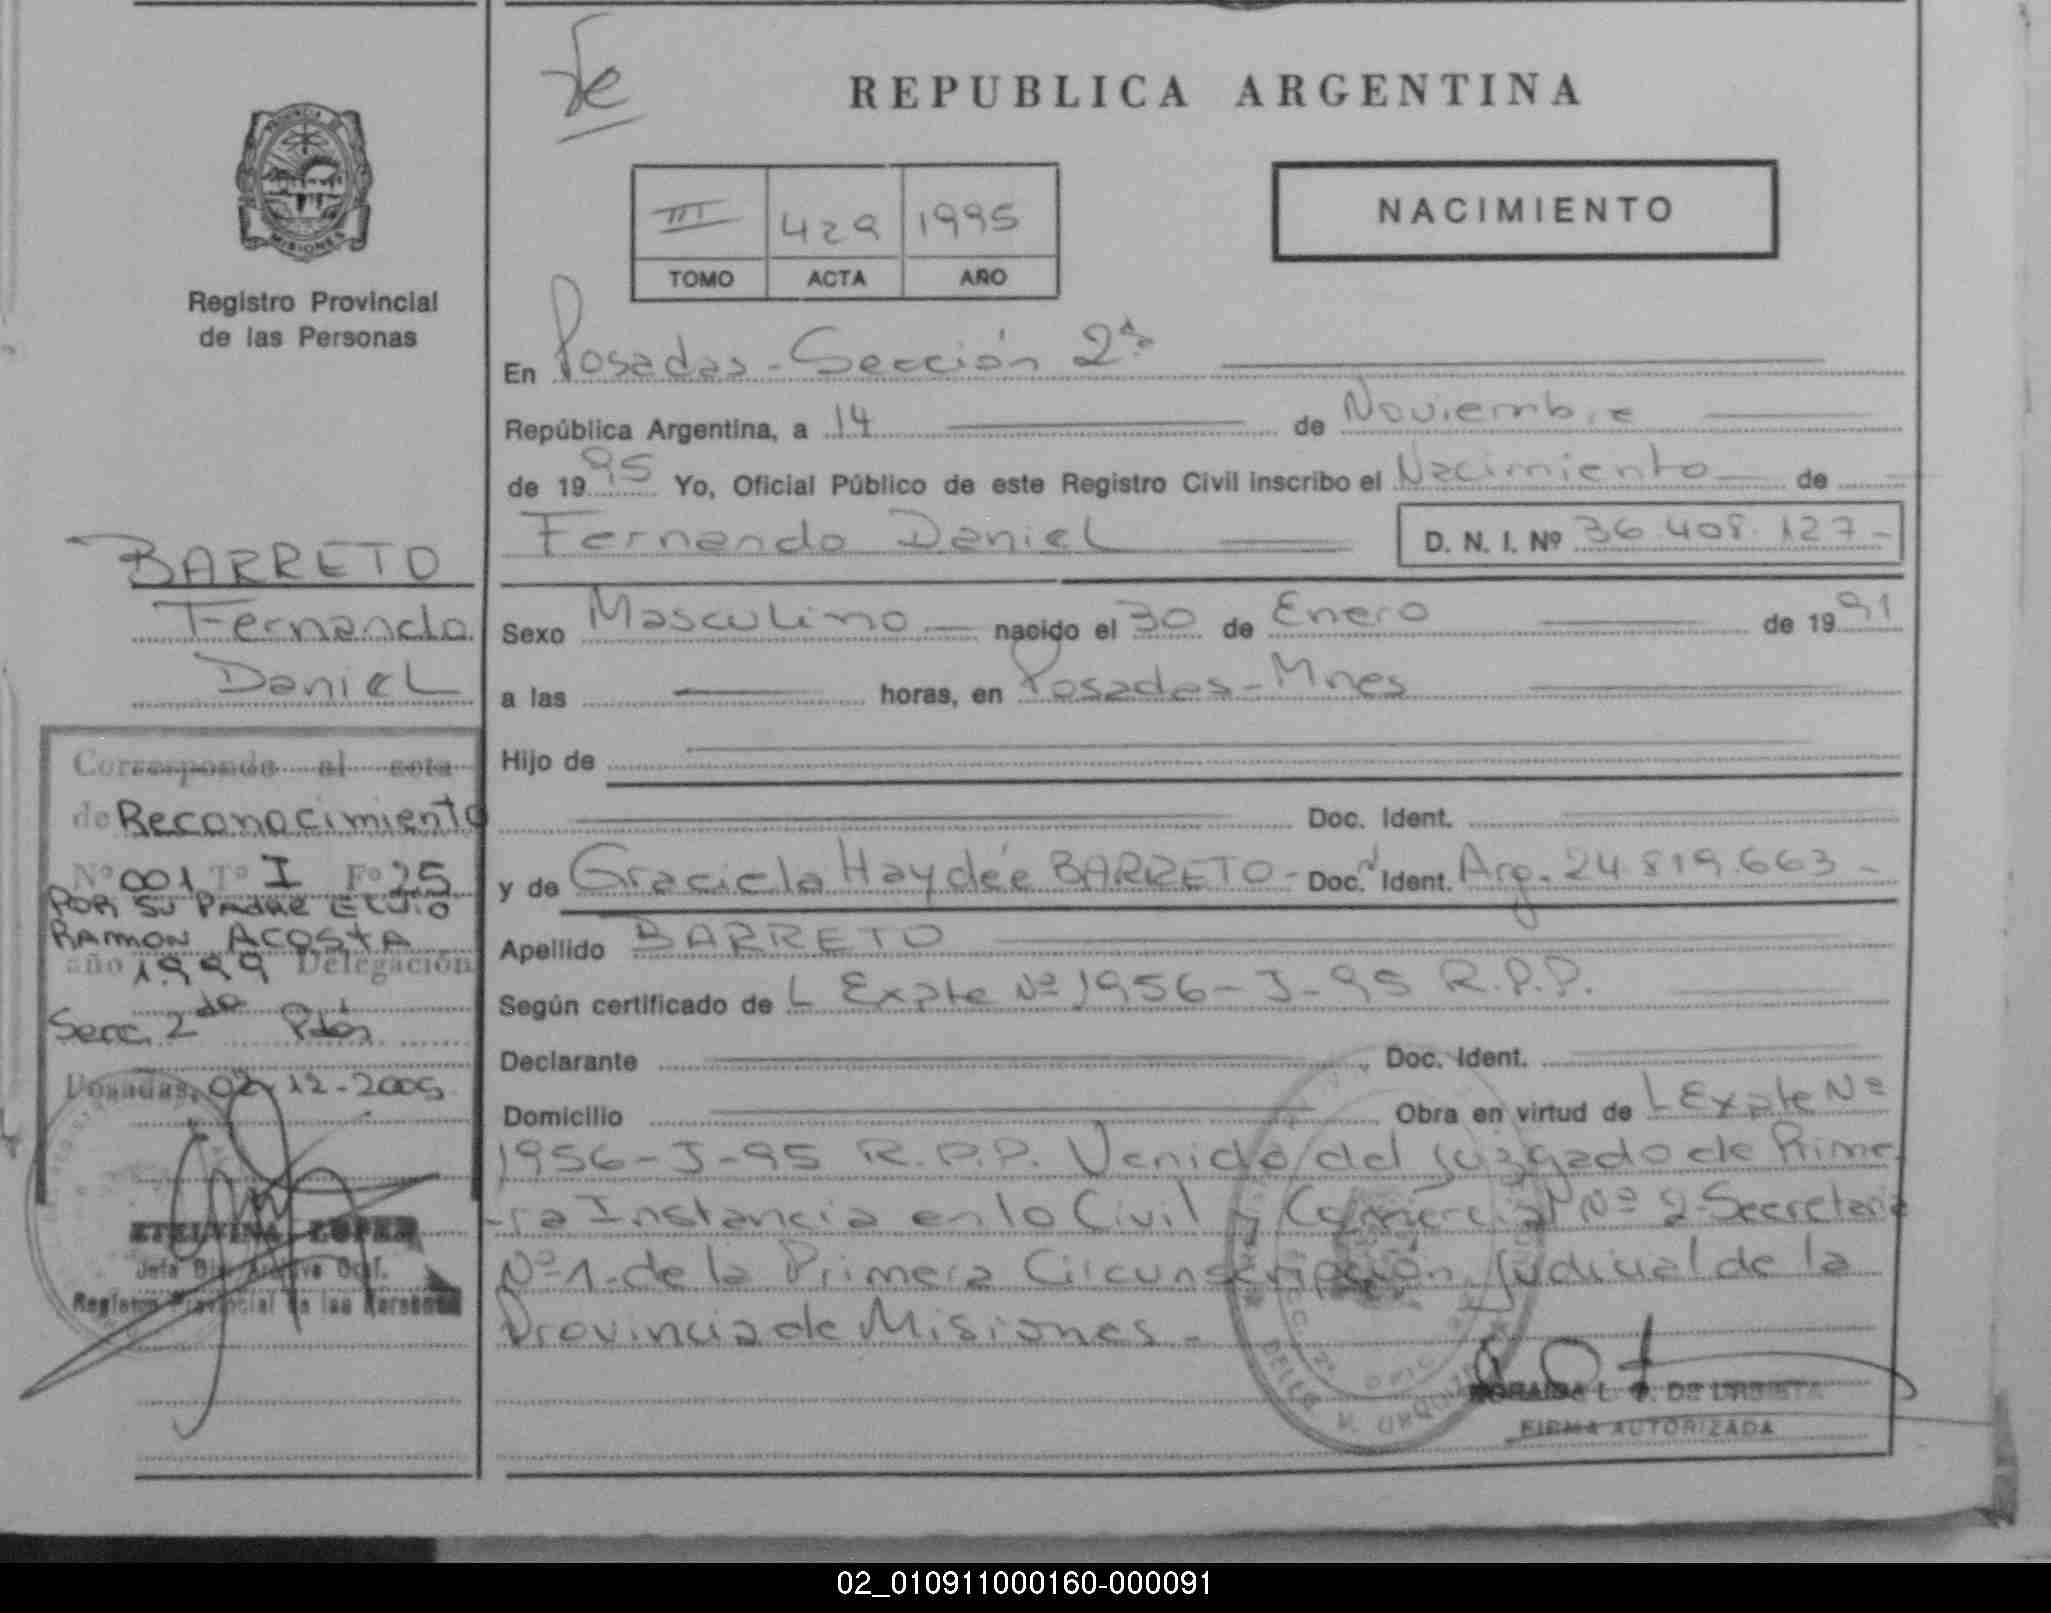 REPUBLICA ARGENTINA
III 429 1995
TOMO ACTA AÑO
NACIMIENTO
PROVINCIA DE
MISIONES
Registro Provincial
de las Personas
En Posadas - Sección 2da
República Argentina, a 14 de Noviembre
de 1995 Yo, Oficial Público de este Registro Civil inscribo el Nacimiento de
Fernando Daniel D. N. I. Nº 36.408.127-
Sexo Masculino nacido el 30 de Enero de 1991
a las horas, en Posadas - Mnes
Hijo de
Doc. Ident.
y de Graciela Haydée BARRETO - Doc. Ident. Arg. 24.819.663-
Apellido BARRETO
Según certificado de L Expte Nº 1956-J-95 R.P.P.
Declarante Doc. Ident.
Domicilio Obra en virtud de L Expte Nº
1956-J-95 R.P.P. Venido del Juzgado de Prime
-ra Instancia en lo Civil y Comercial Nº 2 Secretaria
Nº 1 - de la Primera Circunscripción Judicial de la
Provincia de Misiones -
DE URBIETA
FIRMA AUTORIZADA
BARRETO
Fernando
Daniel
Corresponde al acta
de Reconocimiento
Nº 001 Tº I Fº 25
POR SU PADRE ELVIO
RAMON ACOSTA
año 1.999 Delegación
Secc. 2da Pdas
Posadas, 02-12-2005
ETELVINA LOPEZ
Registro Provincial de las Personas
02_010911000160-000091